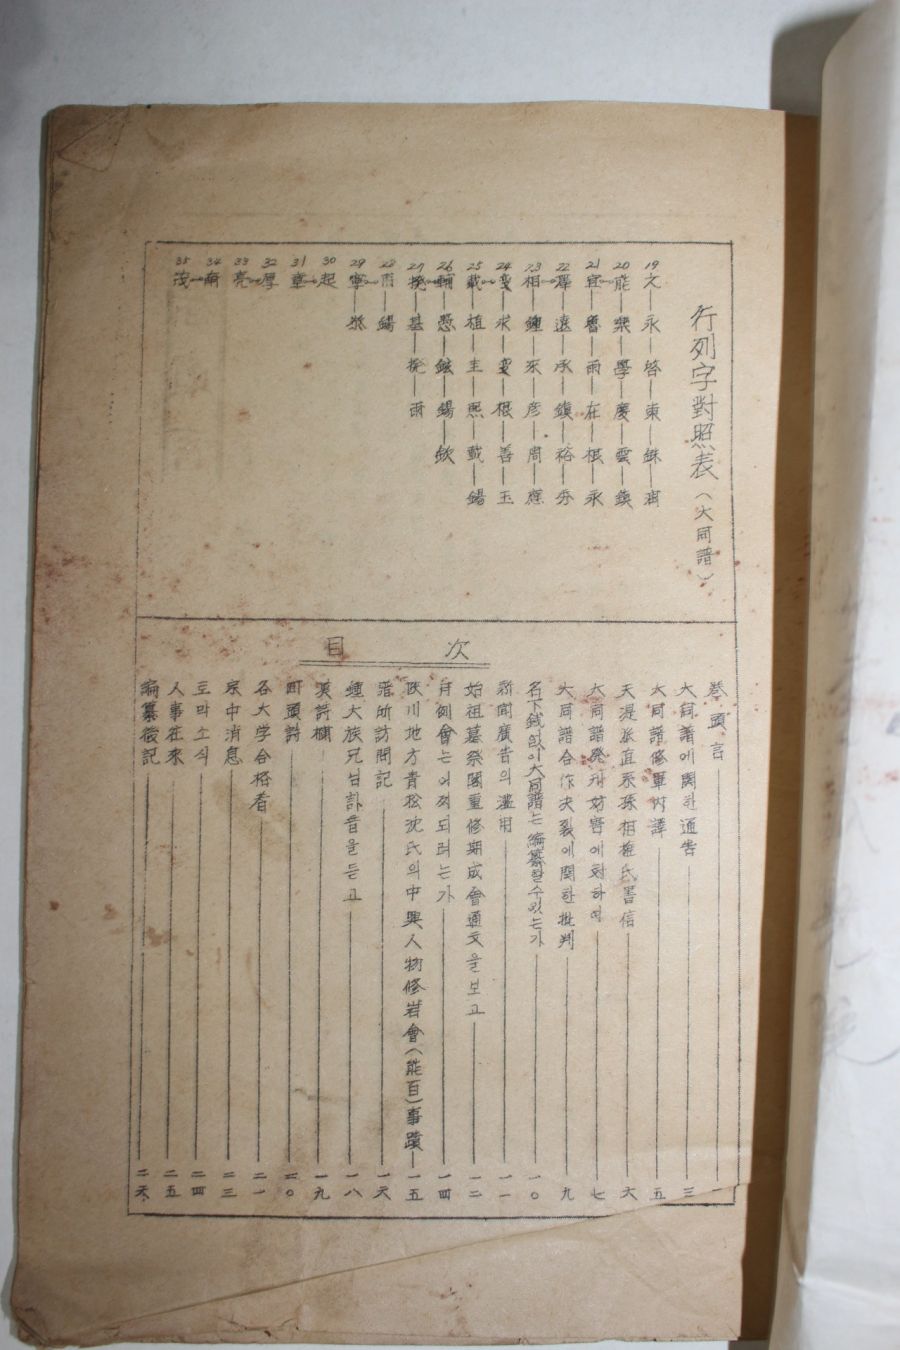 行列字對照表（大同譜）
19 文—永—啓—東—銖—
20 能—樂—學—慶—雲—鎂
21 宜—魯—雨—在—根—永
22 澤—遠—承—鎭—裕—秀
23 相—鍾—來—彦—周—
24 燮—求—燮—根—善—玉
25 載—植—圭—熙—載—錫
26 輔—愚—鉉—錫—欽
27 基—
28 雨—錫
29 寧
30 起
31 章
32 厚
33 亮
34 南
35 茂
目次
卷頭言 一
大同譜에関한通告 三
大同譜修單 五
天湜派直系孫相權氏書信 六
大同譜発刊妨害에対하여 七
大同譜合作決裂에関한批判 九
名下錢없이大同譜는編纂할수있는가 一〇
新聞廣告의濫用 一一
始祖墓祭閣重修期成會通文을보고 一二
月例會는어찌되려는가 一四
陜川地方靑松沈氏의中興人物修岩會(能百)事蹟 一五
譜所訪問記 一六
鍾大族兄님訃音을듣고 一八
漢詩欄 一九
街頭詩 二〇
各大学合格者 二一
宗中消息 二三
토막소식 二四
人事往來 二五
編纂後記 二六